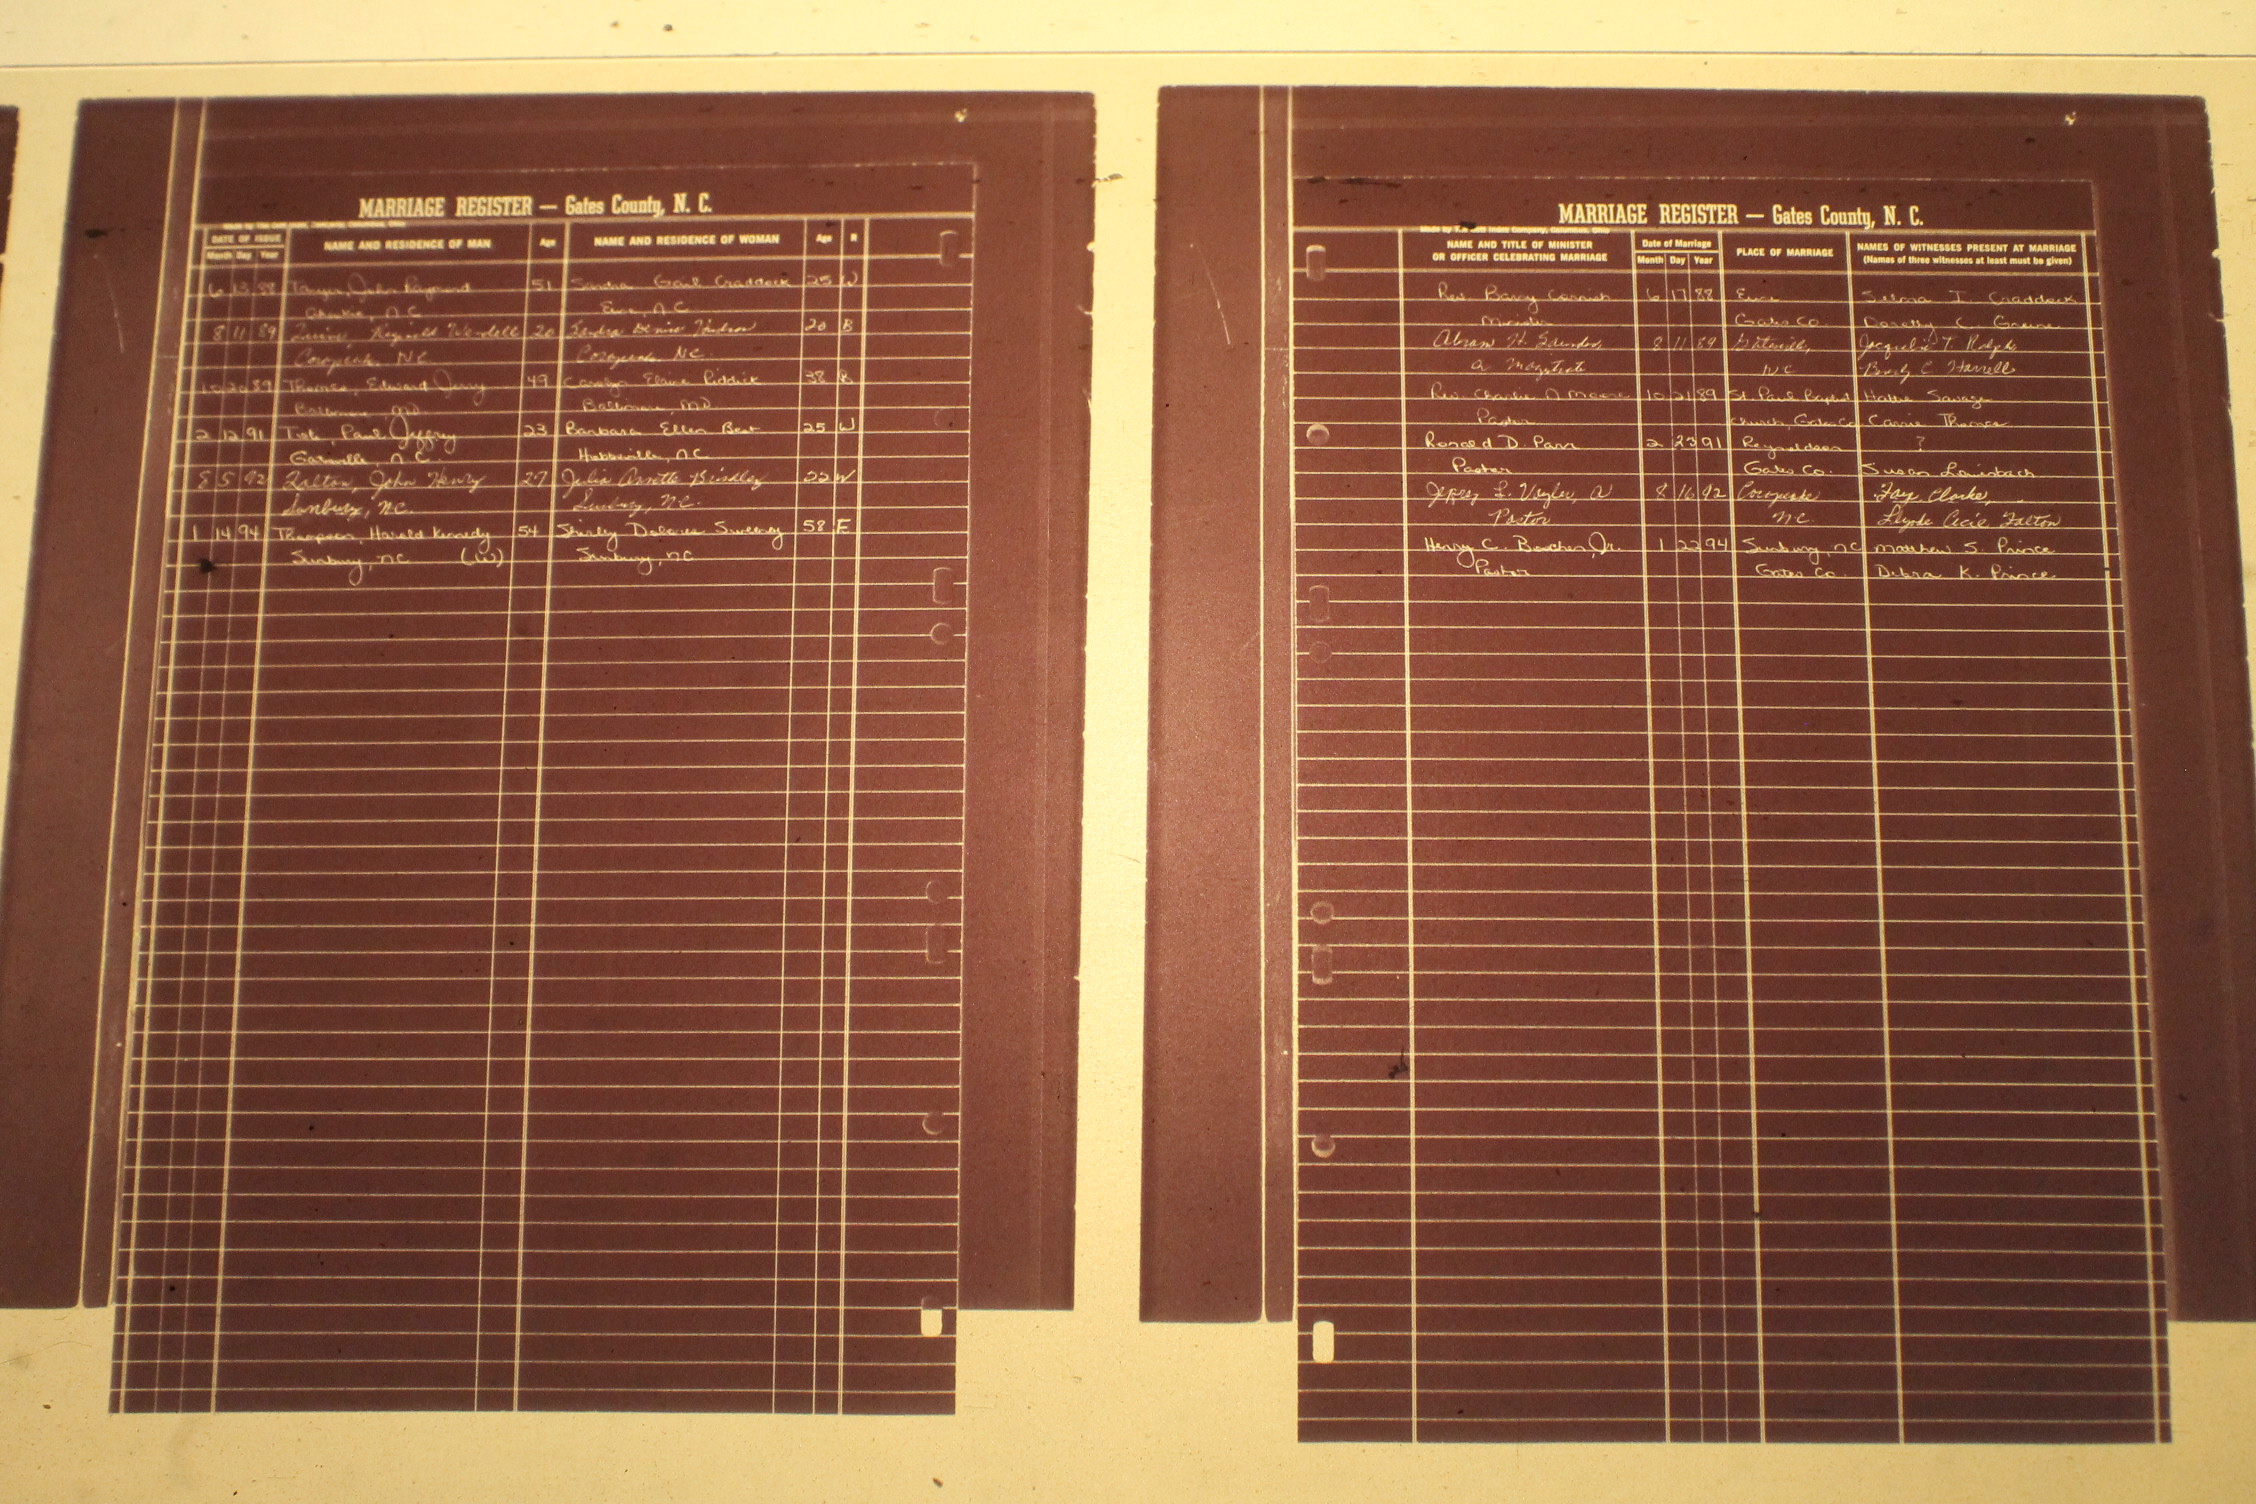 MARRIAGE REGISTER — Gates County, N. C.
DATE OF ISSUE NAME AND RESIDENCE OF MAN Age NAME AND RESIDENCE OF WOMAN Age R
Month Day Year
6 13 88 John Raymond 51 Sandra Gail Craddock 25 W
N.C. Eure, N.C.
8 11 89 Reginald Wendell 20 Denise 20 B
Corapeake, NC Corapeake, NC.
10 20 89 Thomas, Edward Jerry 49 Carolyn Elaine Riddick 38 B
Baltimore, MD. Baltimore, MD
2 12 91 Paul Jeffrey 23 Barbara Ellen Best 25 W
Gatesville, N.C. Hobbsville, NC
8 5 92 John Henry 27 Julia Annette Brinkley 22 W
Sunbury, NC. Sunbury, NC.
1 14 94 Thompson, Harold Kennedy 54 Shirley Dolores Sweeney 58 F
Sunbury, NC (W) Sunbury, NC
MARRIAGE REGISTER — Gates County, N. C.
NAME AND TITLE OF MINISTER Date of Marriage PLACE OF MARRIAGE NAMES OF WITNESSES PRESENT AT MARRIAGE
OR OFFICER CELEBRATING MARRIAGE Month Day Year (Names of three witnesses at least must be given)
Rev. Barry Cornish 6 17 88 Eure Selma I. Craddock
Minister Gates Co. Dorothy C.
Abram H. Saunders, 8 11 89 Gatesville, Jacquelin T. Rolfe
a Magistrate NC Beverly C. Harrell
Rev. Charlie D Moore 10 21 89 St. Paul Baptist Hattie Savage
Pastor Church, Gates Co Carrie Thomas
Ronald D. Parr 2 23 91 Reynoldson ?
Pastor Gates Co. Susan
L. a 8 16 92 Corapeake Fay Clarke,
Pastor NC. Cecil
Henry C. Boschen, Jr. 1 22 94 Sunbury, NC Matthew S. Prince
Pastor Gates Co. Debra K. Prince